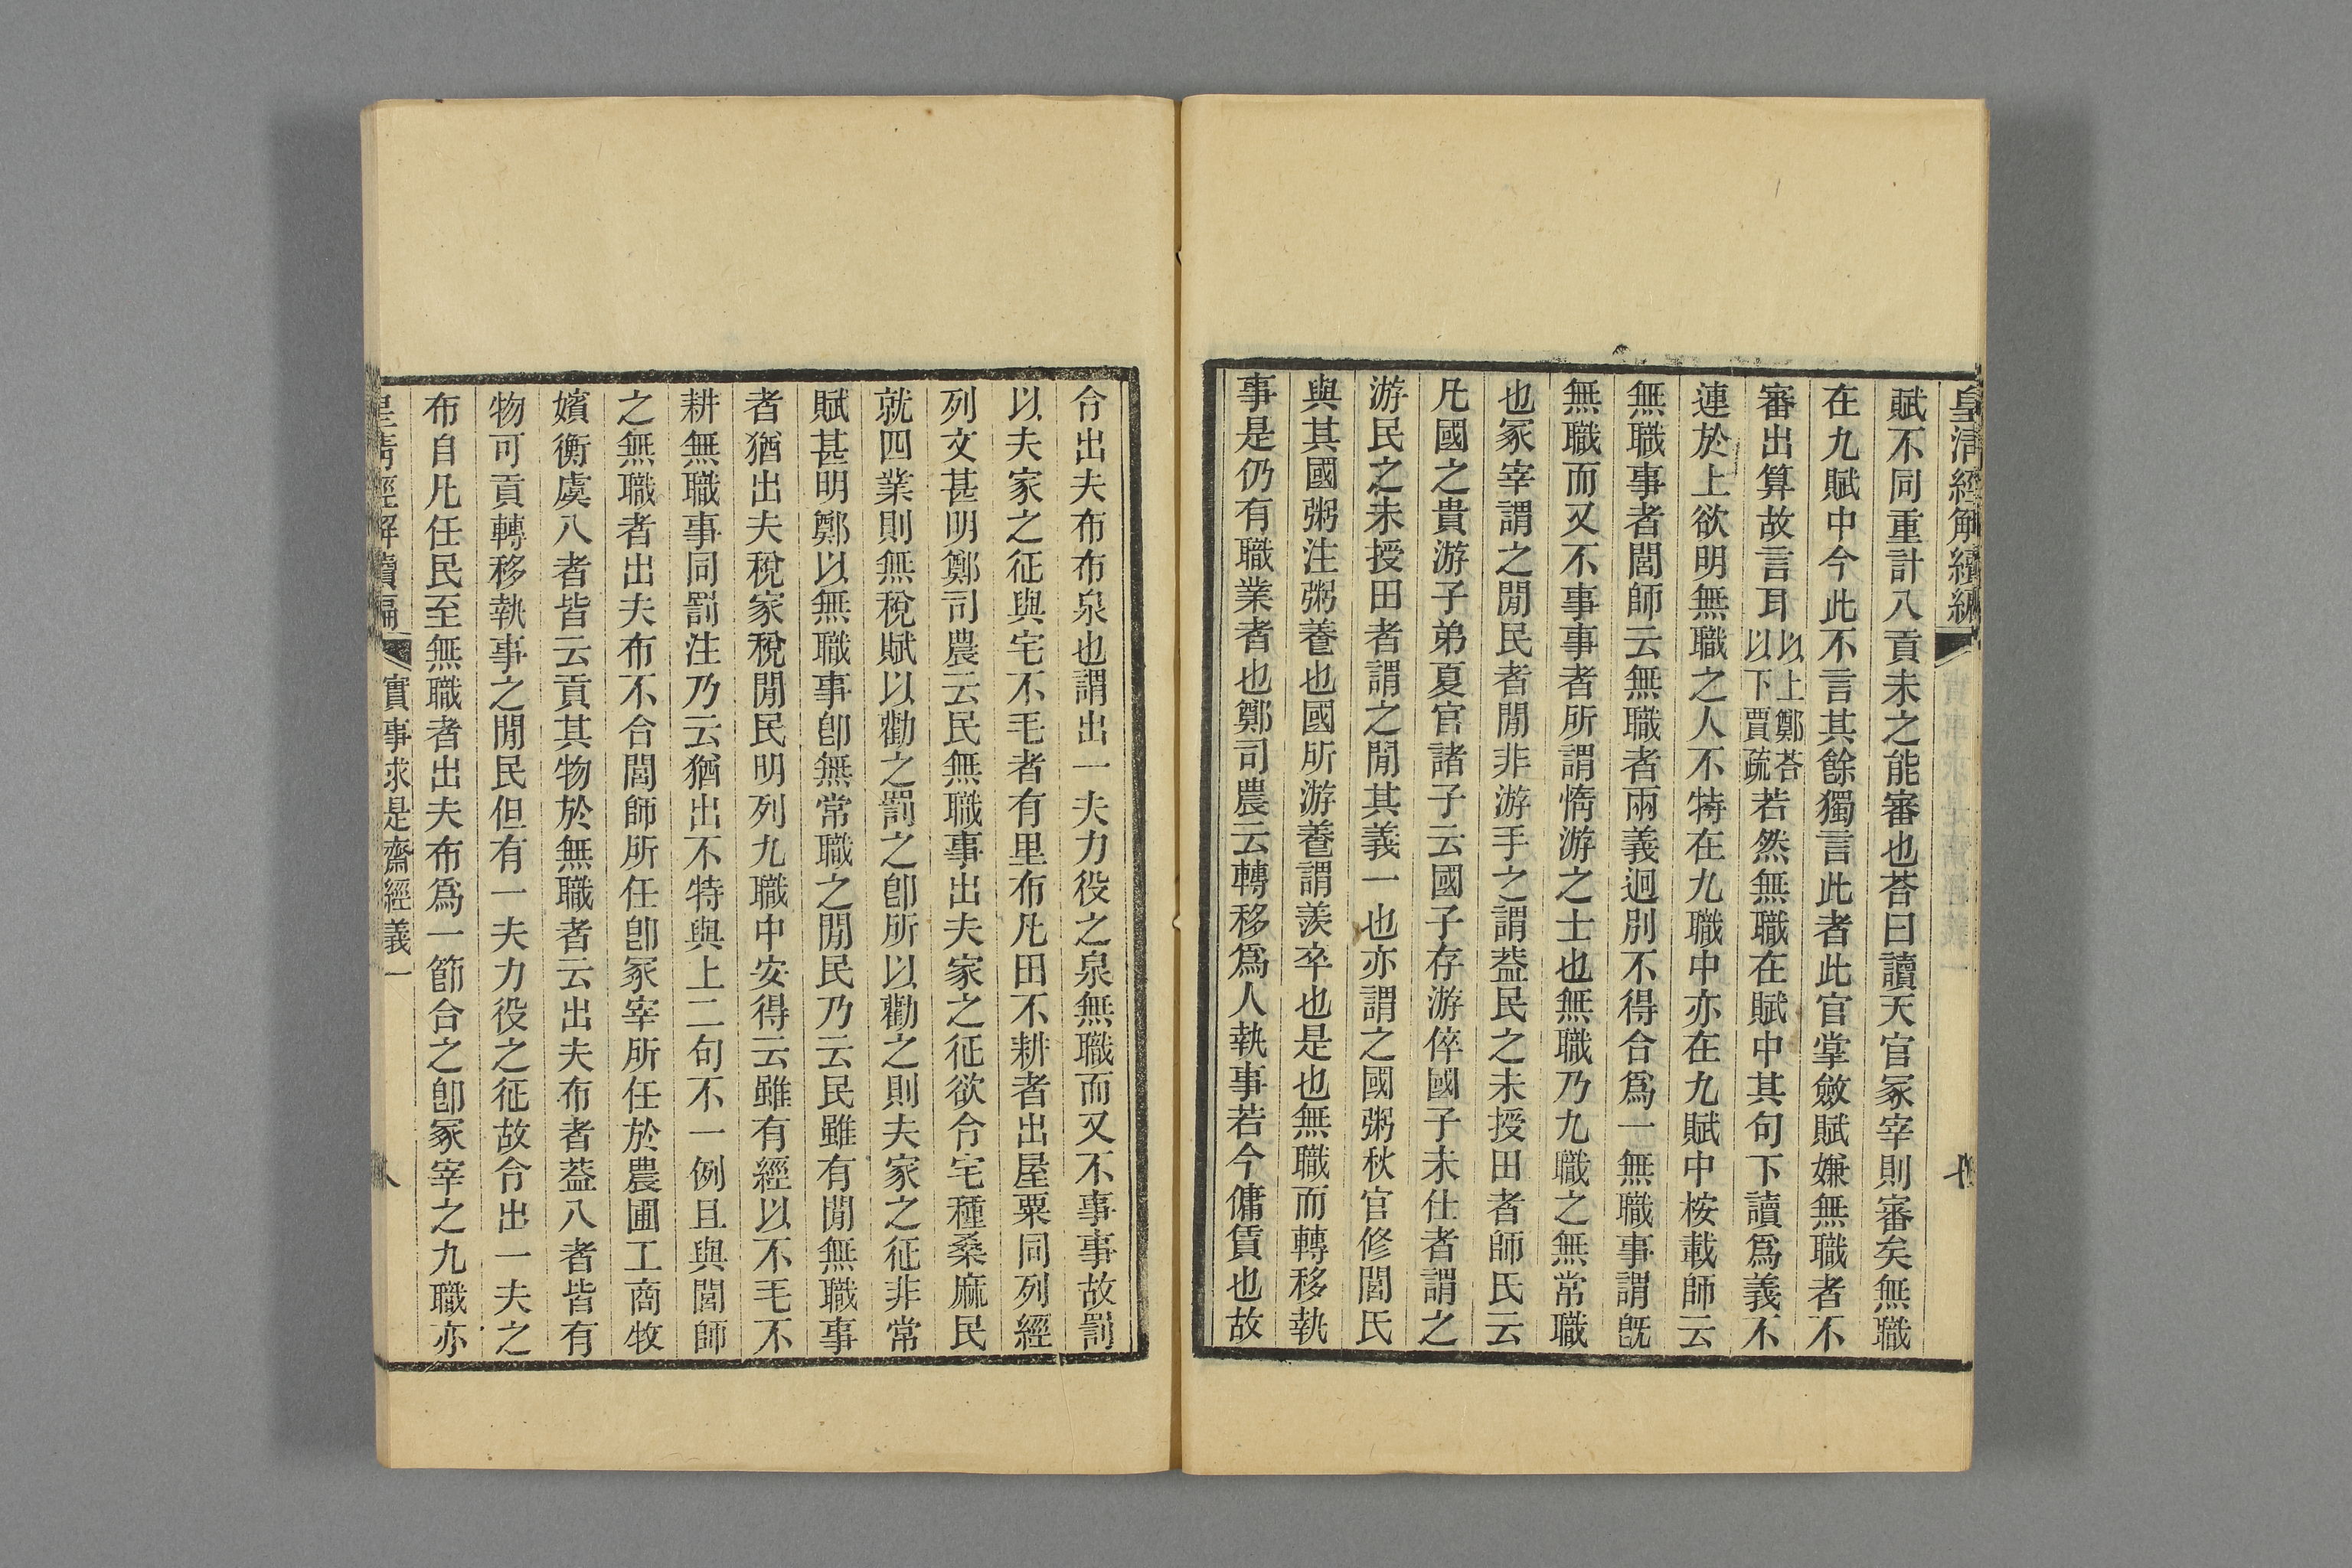 皇清經解續編
賦不同重計八貢未之能審也荅曰讀天官冢宰則審矣無職
在九賦中今此不言其餘獨言此者此官掌斂賦嫌無職者不
審出算故言耳以上鄭荅以下賈疏若然無職在賦中其句下讀爲義不
連於上欲明無職之人不特在九職中亦在九賦中桉載師云
無職事者閭師云無職者兩義迥別不得合爲一無職事謂旣
無職而又不事事者所謂惰游之士也無職乃九職之無常職
也冢宰謂之閒民者閒非游手之謂葢民之未授田者師氏云
凡國之貴游子弟夏官諸子云國子存游倅國子未仕者謂之
游民之未授田者謂之閒其義一也亦謂之國粥秋官修閭氏
與其國粥注粥養也國所游養謂羨卒也是也無職而轉移執
事是仍有職業者也鄭司農云轉移爲人執事若今傭賃也故
令出夫布布泉也謂出一夫力役之泉無職而又不事事故罰
以夫家之征與宅不毛者有里布凡田不耕者出屋粟同列經
列文甚明鄭司農云民無職事出夫家之征欲令宅種桑麻民
就四業則無稅賦以勸之罰之卽所以勸之則夫家之征非常
賦甚明鄭以無職事卽無常職之閒民乃云民雖有閒無職事
者猶出夫稅家稅閒民明列九職中安得云雖有經以不毛不
耕無職事同罰注乃云猶出不特與上二句不一例且與閭師
之無職者出夫布不合閭師所任卽冢宰所任於農圃工商牧
嬪衡虞八者皆云貢其物於無職者云出夫布者葢八者皆有
物可貢轉移執事之閒民但有一夫力役之征故令出一夫之
布自凡任民至無職者出夫布爲一節合之卽冢宰之九職亦
皇清經解續編 實事求是齋經義一 八